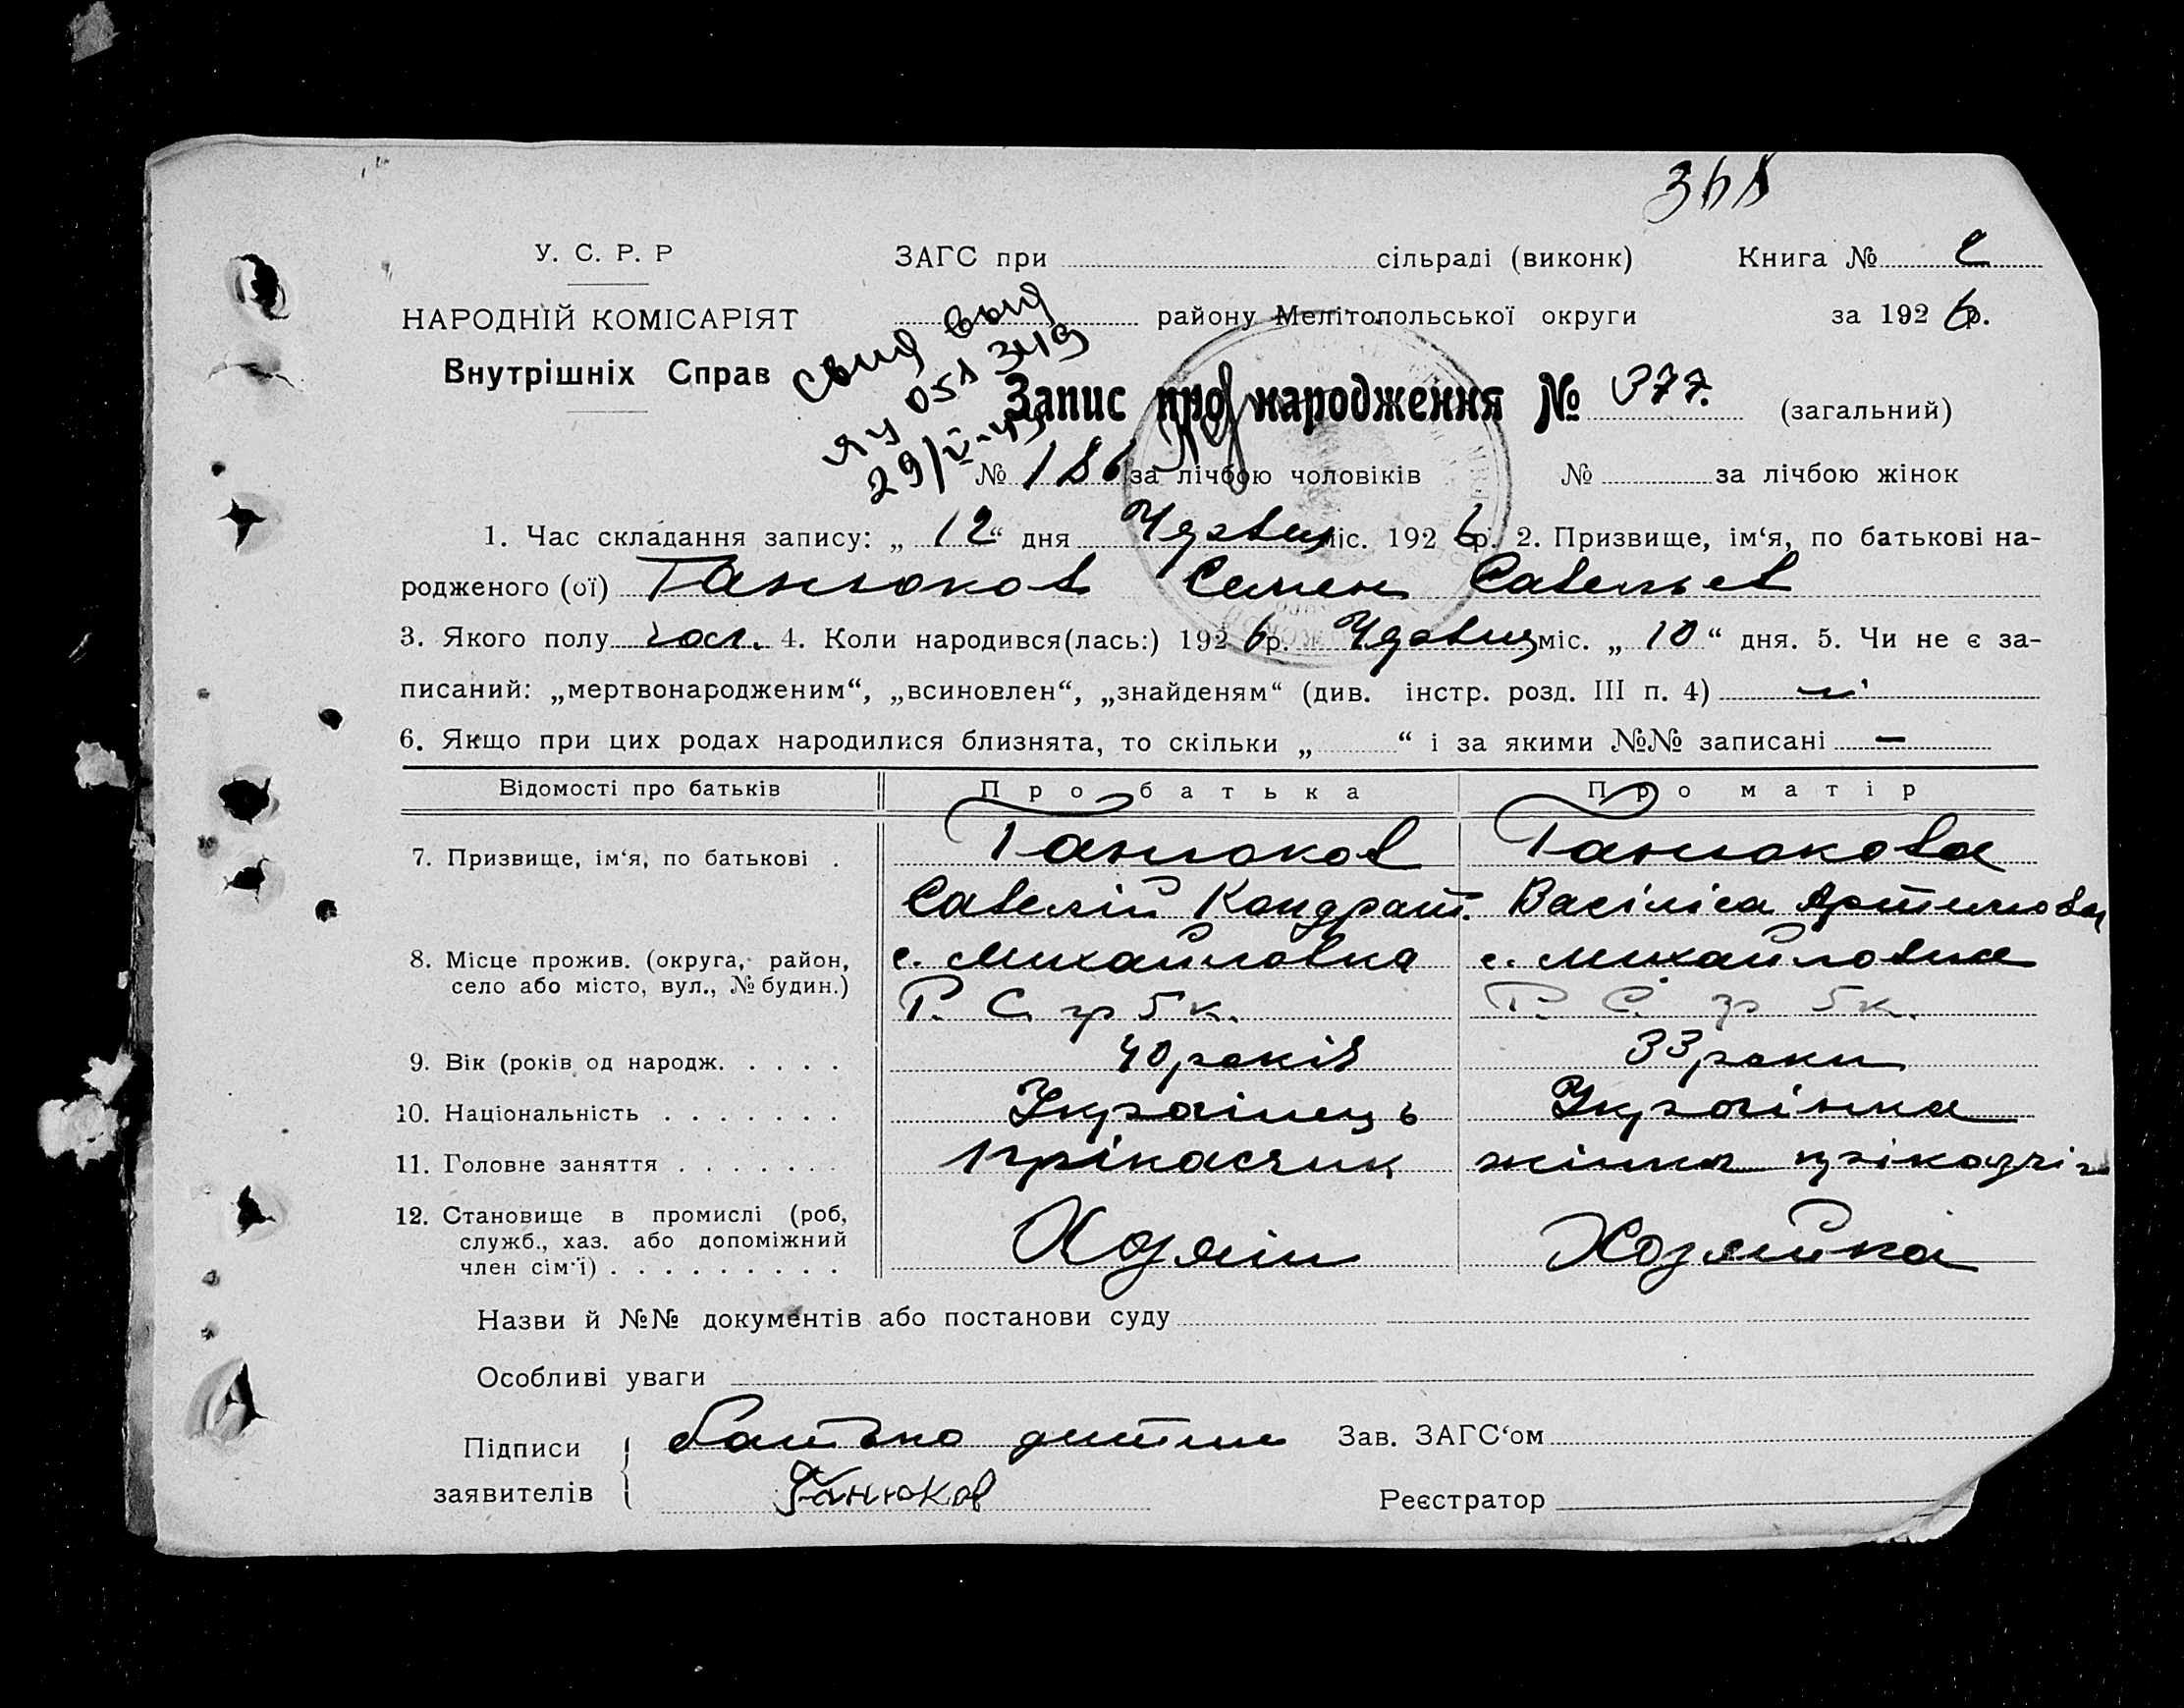 У. С. Р. Р
ЗАГС при сільраді (виконк) Книга № 2
НАРОДНІЙ КОМІСАРІЯТ
району Мелітопольської округи за 1926 р.
Внутрішніх Справ
051 3419
29/V-45
Запис про народження № 377. (загальний)
№ 186 за лічбою чоловіків № за лічбою жінок
1. Час складання запису: „ 12 “ дня Червця міс. 1926 р. 2. Призвище, ім‘я, по батькові на-
родженого (ої) Ганюков Семен Савельев
3. Якого полу чол. 4. Коли народився(лась:) 1926 р. Червця міс. „ 10 “ дня. 5. Чи не є за-
писаний: „мертвонародженим“, „всиновлен“, „знайденям“ (див. інстр. розд. III п. 4) ні
6. Якщо при цих родах народилися близнята, то скільки „ “ і за якими №№ записані —
Відомості про батьків Про батька Про матір
7. Призвище, ім‘я, по батькові . Ганюков Ганюкова
Савелій Кондрат. Васіліса Артимова
8. Місце прожив. (округа, район, с. Михайловка с. Михайловка
село або місто, вул., № будин.) Р. С. гр 5 к. Р. С. гр 5 к.
9. Вік (років од народж. . . . . 40 років 33 роки
10. Національність . . . . . . . Українець Українка
11. Головне заняття . . . . . . . прікасчик жінка
12. Становище в промислі (роб, Хозяін Хозяйка
служб., хаз. або допоміжний
член сім‘ї) . . . . . . . . .
Назви й №№ документів або постанови суду
Особливі уваги
Підписи батько дитини Зав. ЗАГС‘ом
заявителів Ганюков Реєстратор